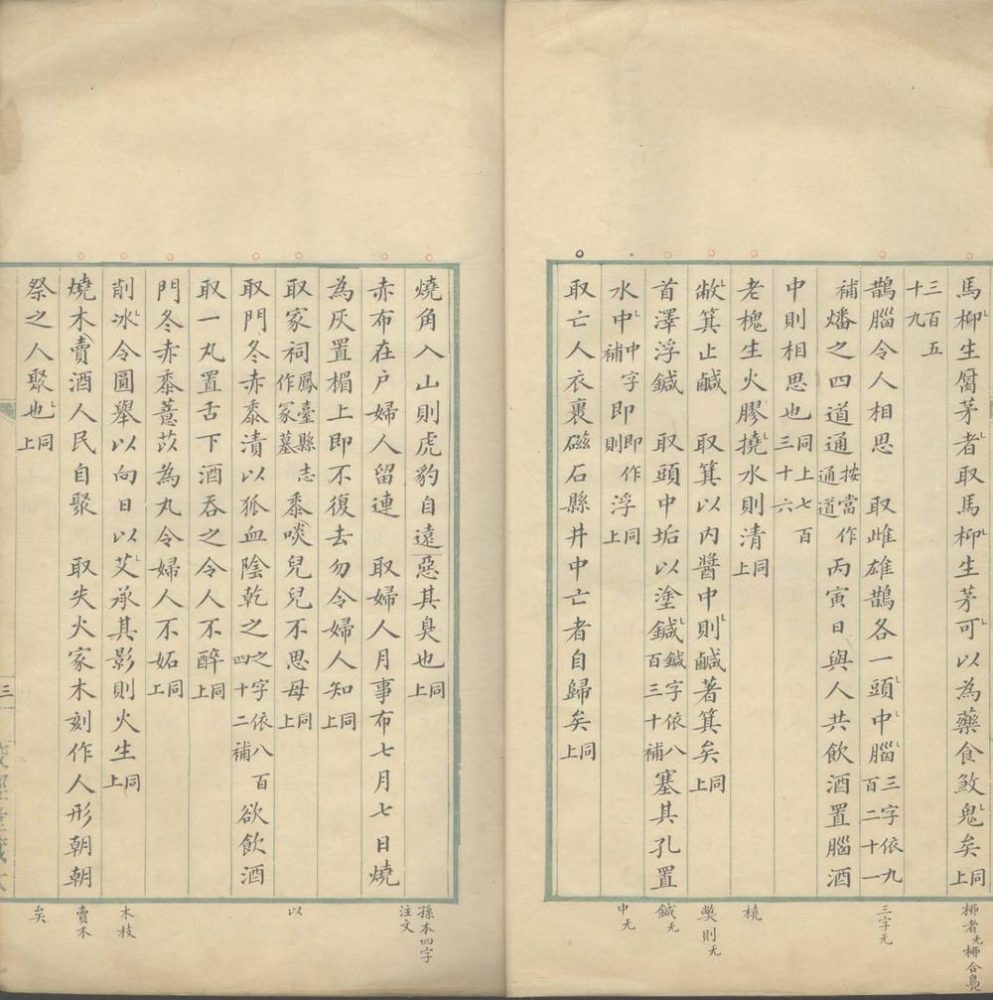 馬柳生腐茅者取馬柳生茅可以為藥食敫鬼矣同上
三百五十九
鵲腦令人相思　取雌雄鵲各一頭中腦三字依九百二十一
補燔之四道通按當作通道丙寅日與人共飲酒置腦酒
中則相思也同上七百三十六
老槐生火膠撓水則清同上
敝箕止鹹　取箕以內醬中則鹹著箕矣同上
首澤浮鍼　取頭中垢以塗鍼鍼字依八百三十補塞其孔置
水中中字補即即作則浮同上
取亡人衣裹磁石縣井中亡者自歸矣同上
燒角入山則虎豹自遠惡其臭也同上
赤布在户婦人留連　取婦人月事布七月七日燒
為灰置楣上即不復去勿令婦人知同上
取家祠鳳臺縣志作冢墓黍啖兒兒不思母同上
取門冬赤黍漬以狐血陰乾之之字依八百四十二補欲飲酒
取一丸置舌下酒吞之令人不醉同上
門冬赤黍薏苡為丸令婦人不妬同上
削冰令圓舉以向日以艾承其影則火生同上
燒木賣酒人民自聚　取失火家木刻作人形朝朝
祭之人聚也同上
三
三字无
橈
獘則无
鍼无
中无
孫本四字注文
以
木枝
賣木
矣